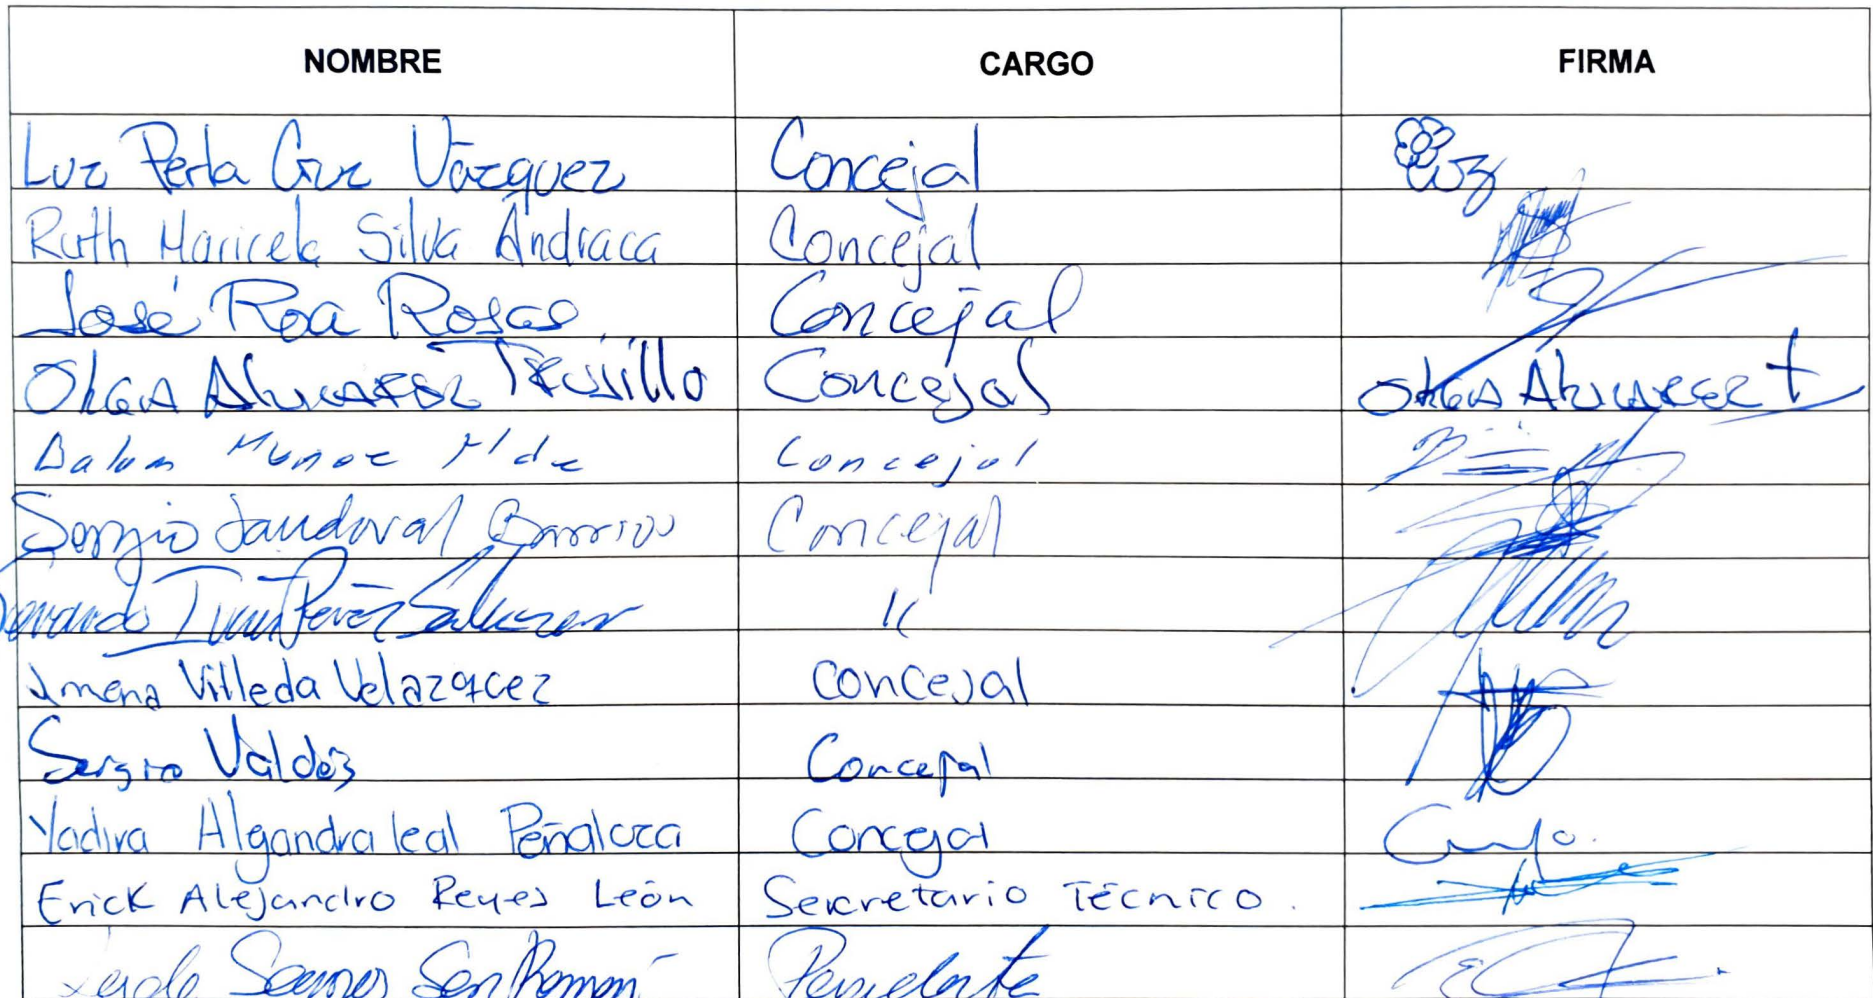 NOMBRE CARGO FIRMA
Luz Perla Cruz Vázquez Concejal Luz
Ruth Maricela Silva Andraca Concejal
José Roa Rosas Concejal
Olga Alvarez Trujillo Concejal Olga Alvarez T
Balam Munoz Hdz Concejal
Sergio Sandoval Barrios Concejal
Ivan Perez Salazar "
Jmena Villeda Velazqcez concejal
Sergio Valdés Concejal
Yadira Alejandra leal Peñaloza Concejal
Erick Alejandro Reyes León Secretario Técnico.
San Román Presidente